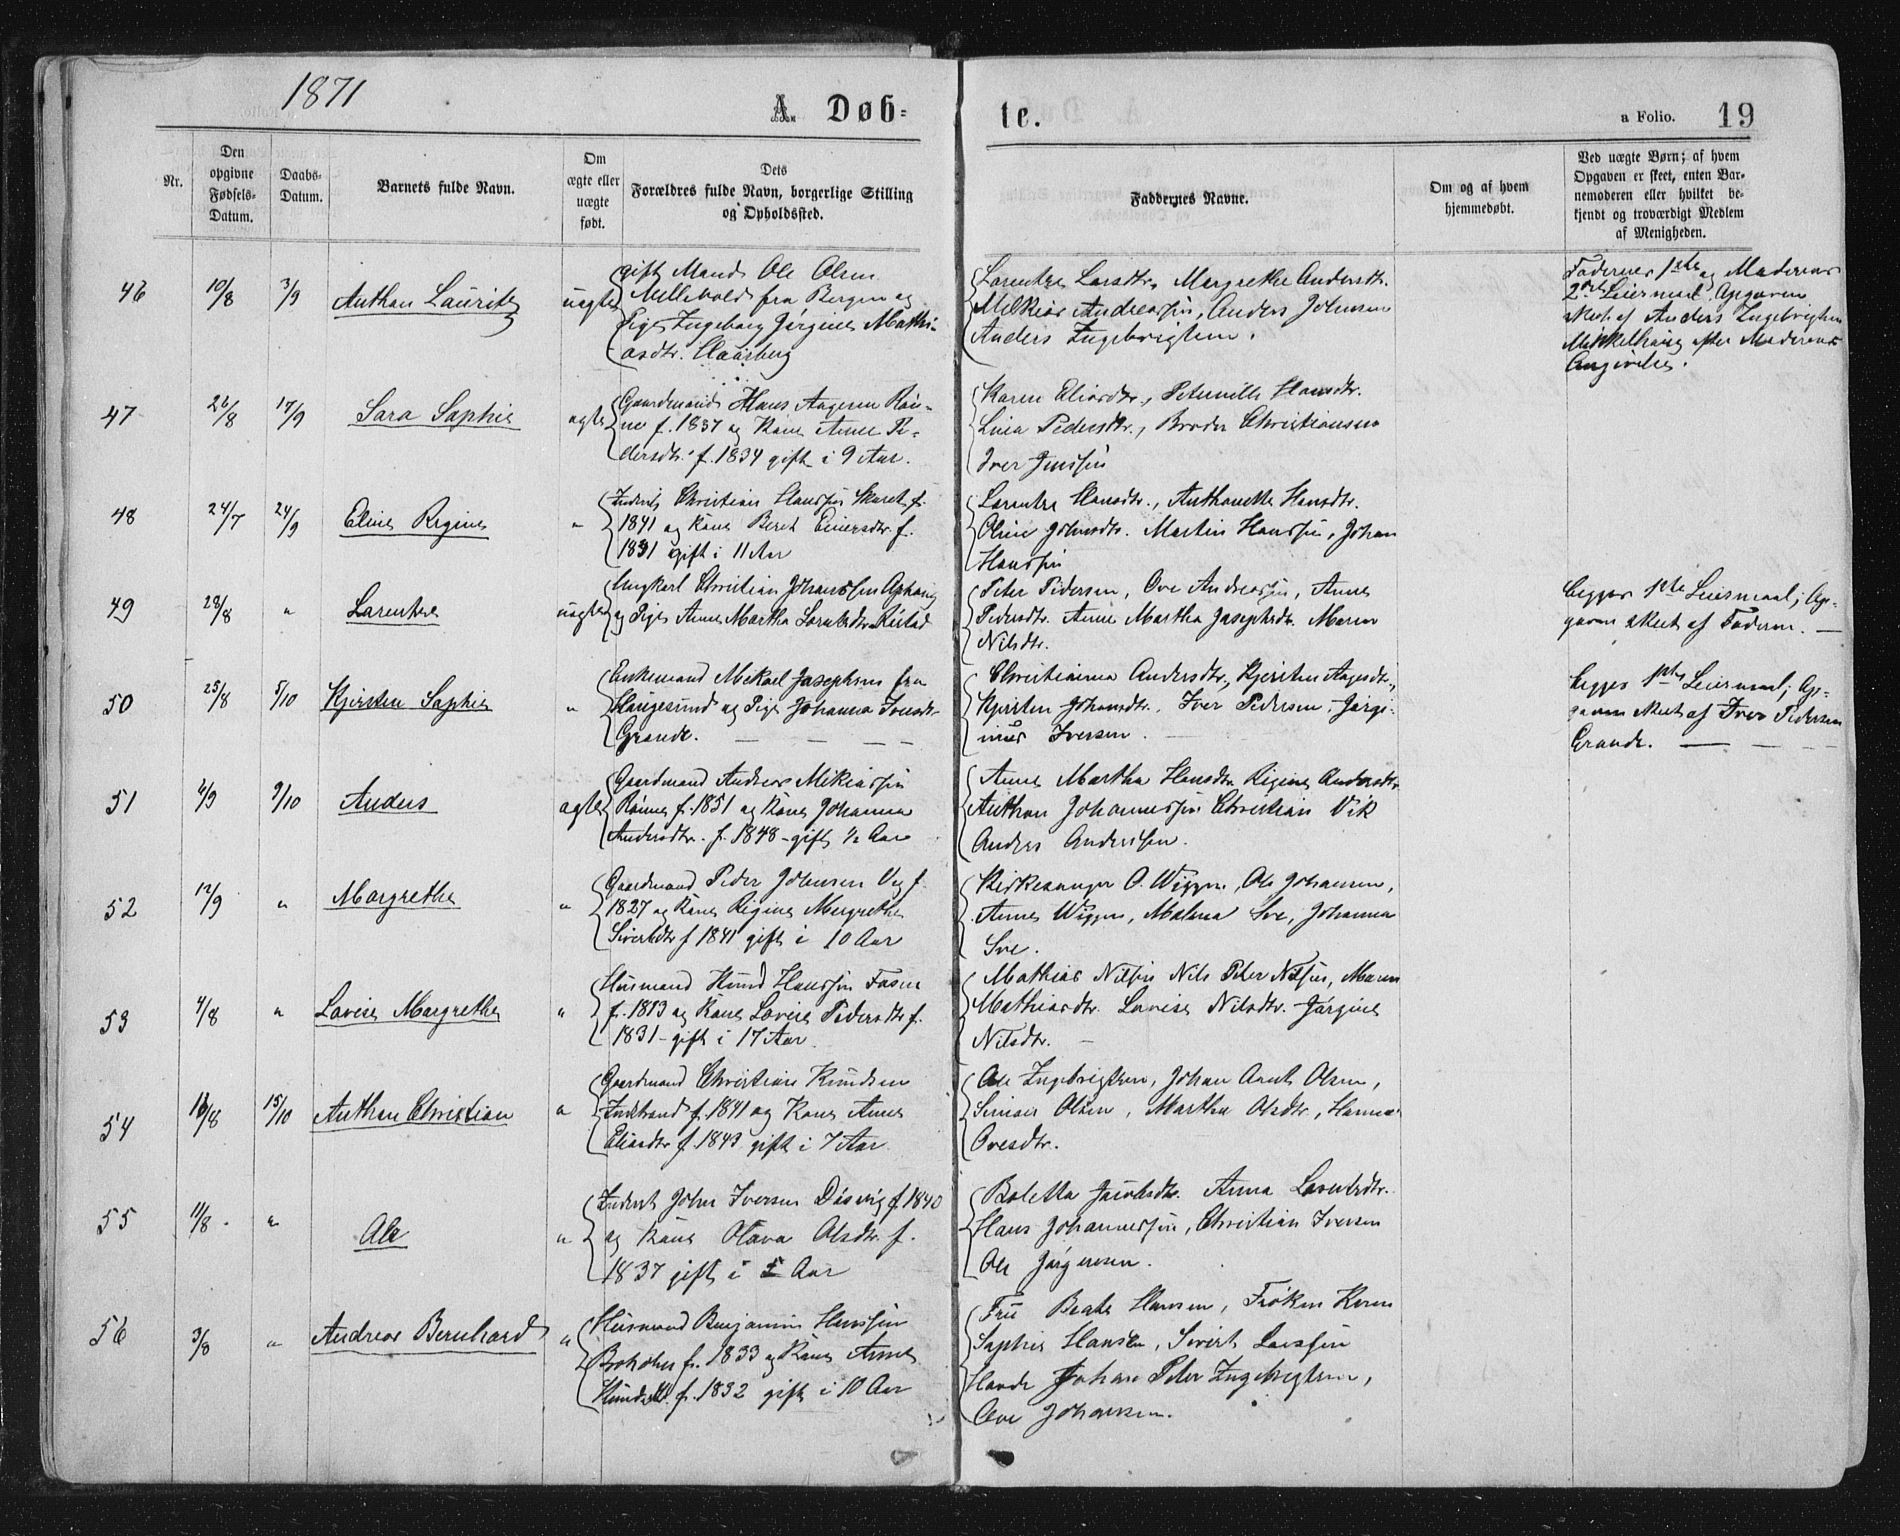 1871
A. Døb=
te.
a Folio.
19
Nr.
Den
opgivne
Fødsels-
Datum.
Daabs-
Datum.
Barnets fulde Navn.
Om
ægte eller
uægte
født.
Dets
Forældres fulde Navn, borgerlige Stilling
og Opholdssted.
Faddernes Navne.
Om og af hvem
hjemmedøbt.
Ved uægte Børn; af hvem
Opgaven er skeet, enten Bar-
nemoderen eller hvilket be-
kjendt og troværdigt Medlem
af Menigheden.
46
10/8
3/9
Anthon Laurits
uægte
gift Mand Ole Olsen
fra Bergen og
Pige Ingeborg Jørgine Mathi-
asdtr.
Larentze Larsdtr, Margrethe Andersdtr.
Melkior Andreassen, Anders Johnsen
Anders Ingebrigtsen.
Faderens 1ste og Moderens
2det Leiermaal. Opgaven
skeet af Anders Ingebrigtsen
Mikkelhaug efter Moderens
Angivelse.
47
26/8
17/9
Sara Sophie
ægte
Gaardmand Hans Aagesen Røn-
ne f. 1837 og Kone Anne Pe-
dersdtr. f. 1834 gift i 9 Aar.
Karen Eliasdtr, Peternille Hansdtr.
Lina Pedersdtr., Broder Christiansen
Iver Jenssen
48
24/7
24/9
Eline Regine
"
Inderst Christian Hanssen Skaret f.
1841 og Kone Beret Einersdtr f.
1831 gift i 11 Aar
Larentze Hansdtr., Anthonette Hansdtr.
Oline Johnsdtr. Martin Hanssen, Johan
Hanssen
49
28/8
"
Larentse
uægte
Ungkarl Christian Johanssen Ophaug
og Pige Anne Martha Lorntsdtr
Peter Pedersen, Ove Andreassen, Anne
Pedersdtr. Anne Martha Josephsdtr. Maren
Nilsdtr.
begges 1ste Leiermaal; Op-
gaven skeet af Faderen. —
50
25/8
5/10
Kjersten Sophie
"
Enkemand Mikael Josephsen fra
Haugesund og Pige Johanna Iversdtr
Grande. — — — —
Christianna Andersdtr., Kjersten Aagesdtr.,
Kjersten Johansdtr. Iver Pedersen, Jørgi-
nus Iversen.
begges 1ste Leiermaal; Op-
gaven skeet af Iver Pedersen
Grande. — — — —
51
4/9
9/10
Anders
ægte
Gaardmand Andreas Mikiassen
Rønne f. 1851 og Kone Johanna
Andersdtr. f. 1848 - gift 1/2 Aar
Anne Martha Hansdtr Regine Andersdtr
Anthon Johannessen Christian Vik
Anders Anderssen.
52
12/9
"
Margrethe
"
Gaardmand Peder Johnsen Veg f.
1827 og Kone Regine Margrethe
Sivertsdtr f 1841 gift i 10 Aar
Kirkesanger O. Wiggen, Ole Johansen,
Anne Wiggen, Malena Sve, Johanna
Sve.
53
4/8
"
Lovise Margrethe
"
Husmand Knud Hanssen
f. 1813 og Kone Lovise Pedersdtr f.
1831 - gift i 17 Aar.
Mathias Nilsen Nils Peter Nilsen, Maren
Mathiasdtr. Lovise Nilsdtr. Jørgine
Nilsdtr. —
54
16/8
15/10
Anthon Christian
"
Gaardmand Christian Knudsen
Indstrand f. 1841 og Kone Anne
Eliasdtr f. 1843 gift i 7 Aar
Ole Ingebrigtsen, Johan Arnt Olsen,
Olsen, Martha Olsdtr, Hanna
Ovesdtr.
55
11/8.
"
Ole
"
Inderst Johan Iversen Døsvig f 1840
og Kone Olava Olsdtr. f.
1837 gift i 5 Aar
Boletta Jacobsdtr. Anna Lorntsdtr.
Hans Johannessen, Christian Iversen
Ole Jørgensen.
56
3/8
"
Andreas Bernhard
"
Husmand Benjamin Hanssen
f. 1833 og Kone Anne
Knudsdtr. f. 1832 gift i 10 Aar
Fru Beate Hansen, Frøken Karen
Sophie Hansen, Sivert Larssen
Johan Peter Ingebrigtsen,
Ove Johansen.